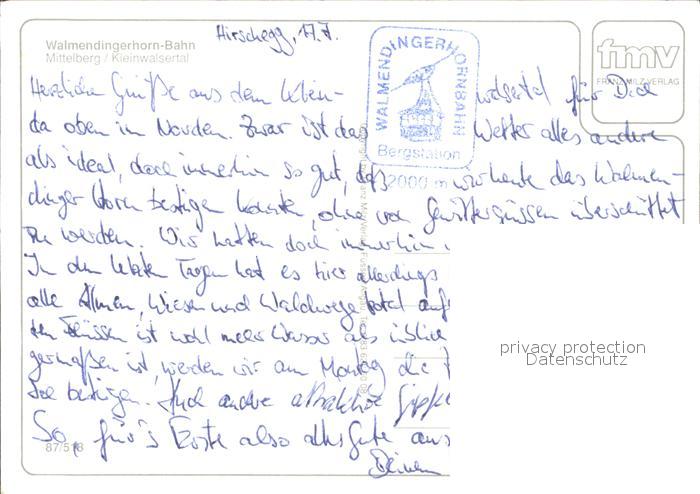 Hirschegg, 17.7.
Walmendingerhorn-Bahn
Mittelberg / Kleinwalsertal
fmv
FRANZ MILZ VERLAG
WALMENDINGERHORNBAHN
Bergstation
2000 m
Herzliche Grüße aus dem Klein- walsertal für Dich
da oben im Norden. Zwar ist das Wetter alles andere
als ideal, doch immerhin so gut, daß wir heute das Walmen-
dinger Horn besteigen konnten, ohne von Gewittergüssen überschüttet
zu werden. Wir hatten doch immerhin
In den letzten Tagen hat es hier allerdings
alle Almen, Wiesen und Waldwege total
den Flüssen ist wohl mehr Wasser als üblich
germaßen ist, werden wir am Montag die
besteigen. Auch andere attraktive Gipfel
So, für's Erste also alles Gute aus
Deinen
87/518
privacy protection
Datenschutz